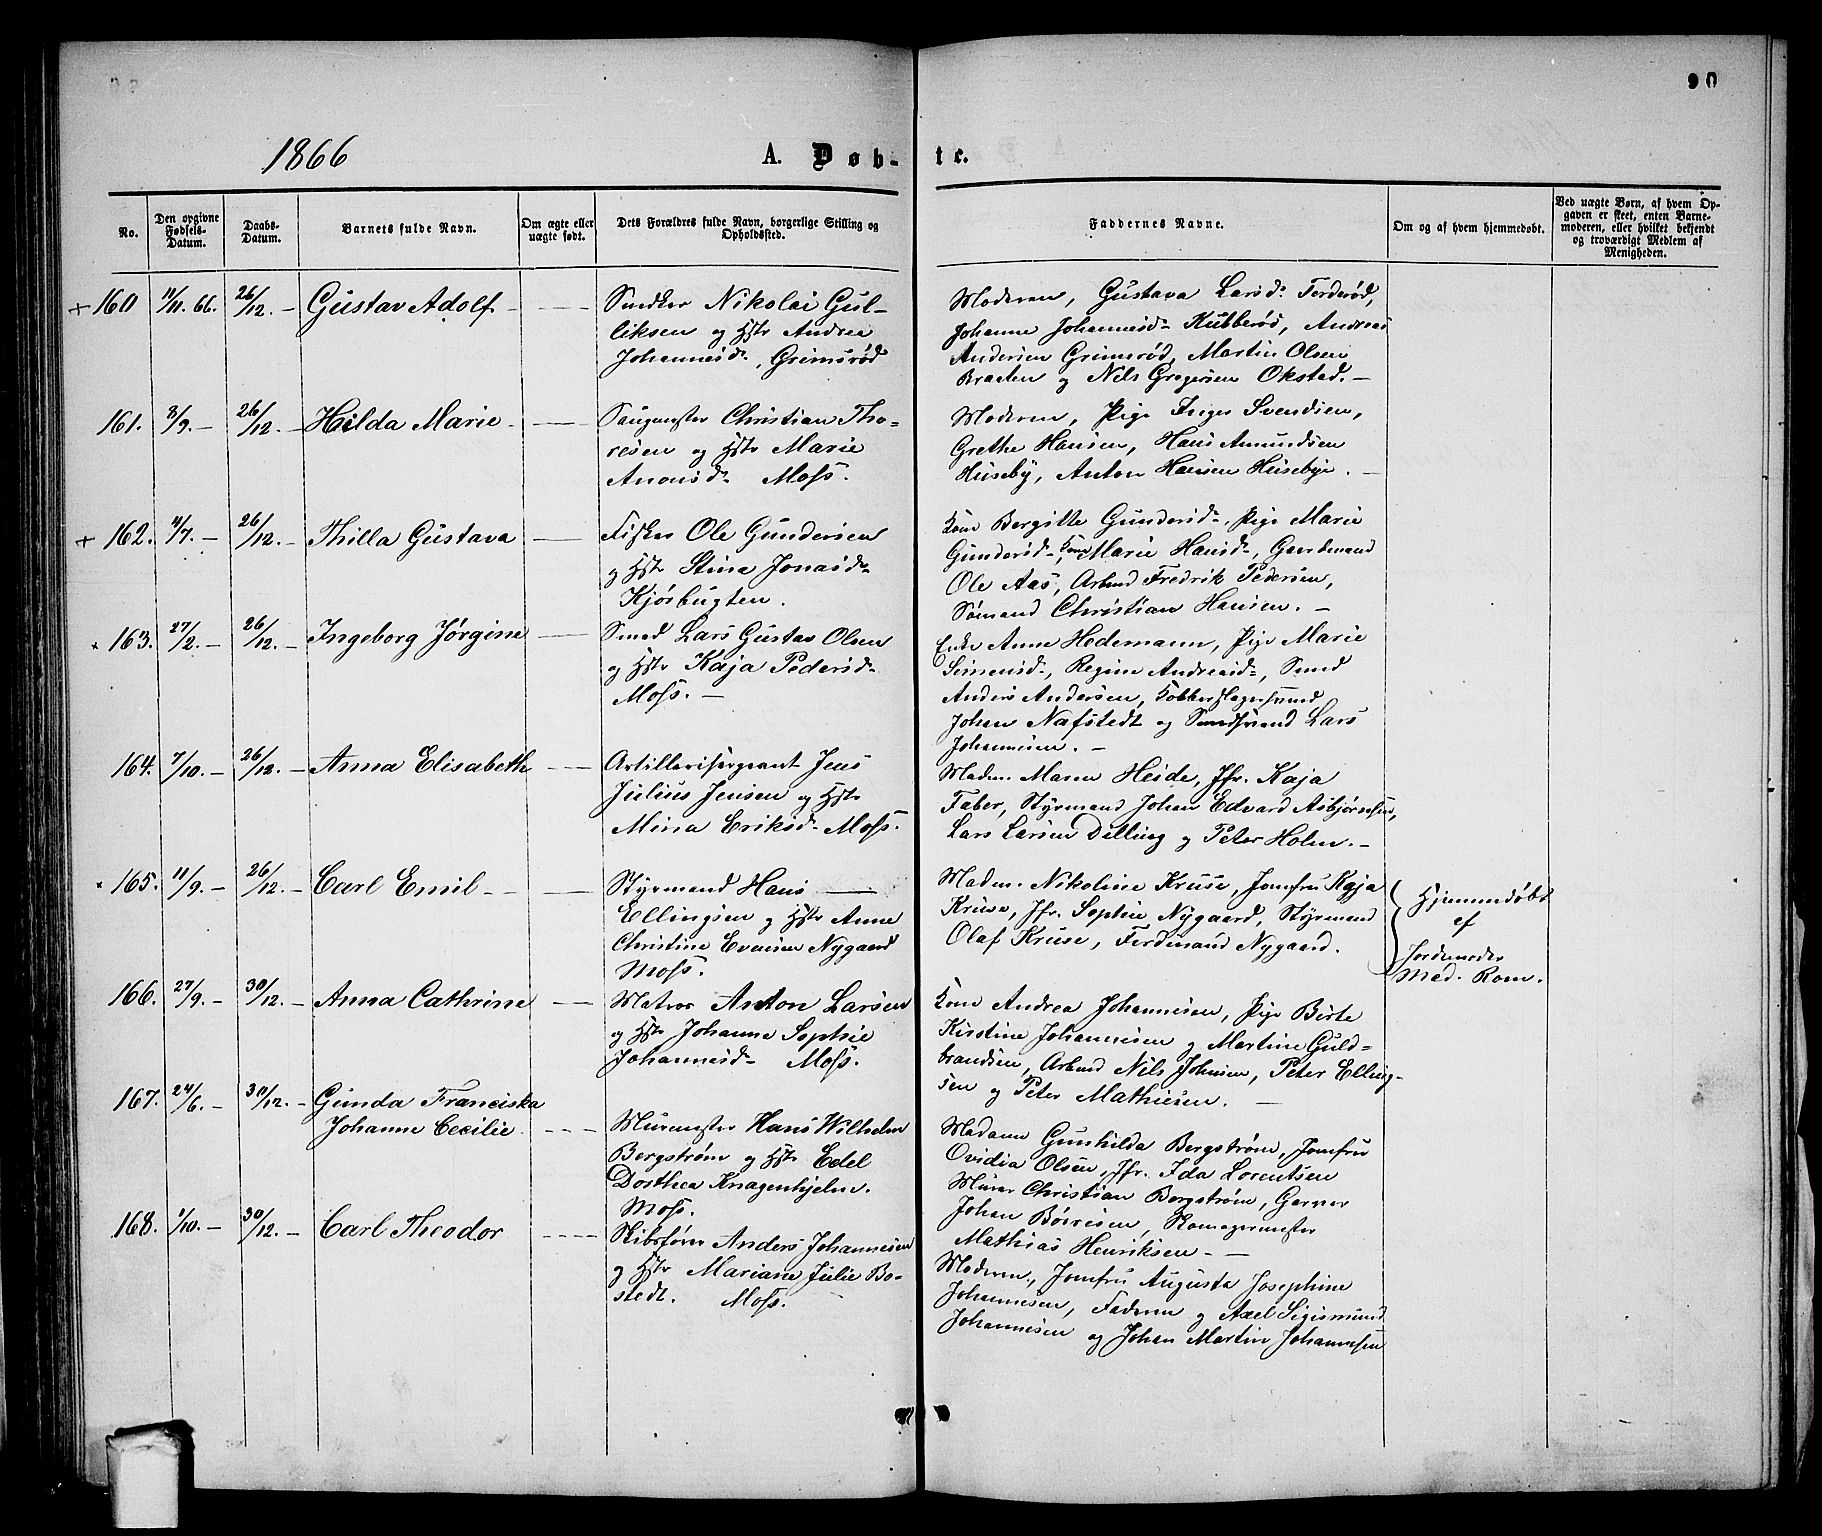 90
1866
A. Døb-
te.
No.
Den opgivne Fødsels-Datum.
Daabs-Datum.
Barnets fulde Navn.
Om ægte eller uægte født.
Dets Forældres fulde Navn, borgerlige Stilling og Opholdssted.
Faddernes Navne.
Om og af hvem hjemmedøbt.
Ved uægte Børn, af hvem Opgaven er skeet, enten Barnemoderen, eller hvilket bekjendt og troværdigt Medlem af Menigheden.
+ 160 11/11. 66. 26/12. – Gustav Adolf –
Snedker Nikolai Gul-
liksen og Hstr Andrea
Johannesd. Grimsrød
Moderen, Gustava Larsd. Ferderød,
Johanne Johannesd. Kubberød, Andreas
Andersen Grimsrød, Martin Olsen
Braaten og Nils Gregersen Okstad. –
161. 3/9. – 26/12. – Hilda Marie –
Saugmester Christian Tho-
resen og Hstr Marie
Ananisd. Moss.
Moderen, Pige Inger Svendsen,
Grethe Hansen, Hans Amundsen
Huseby, Anton Hansen Husebye. –
+ 162. 4/7. – 26/12. – Thilla Gustava
Fisker Ole Gundersen
og Hstr Stina Jonasd.
Kjøsbugten.
Kone Bergitte Gundersd., Pige Marie
Gundersd., Kone Marie Hansd., Gaardmand
Ole Aas, Arbmd Fredrik Pedersen,
Sømand Christian Hansen. –
× 163. 27/2. – 26/12. – Ingeborg Jørgine
Smed Lars Gustav Olsen
og Hstr Kaja Pedersd.
Moss. –
Enke Anne Hedemann, Pige Marie
Simensd., Regine Andreasd., Smed
Anders Andersen, Kobberslagersvend
Johan Nafstedt og Smedsvend Lars
Johannesen. –
164. 7/10. – 26/12. – Anna Elisabeth
Artillerisergeant Jens
Julius Jensen og Hstr
Mina Eriksd. Moss.
Madm. Maren Heide, Jfr. Kaja
Faber, Styrmand Johan Edvard Asbjørnsen,
Lars Larsen Dilling og Peter Holm. –
× 165. 11/9. – 26/12. – Carl Emil –
Styrmand Hans
Ellingsen og Hstr Anne
Christine Evensen Nygaard
Moss.
Madm. Nikoline Kruse, Jomfru Kaja
Kruse, Jfr. Sophie Nygaard, Styrmand
Olaf Kruse, Ferdinand Nygaard.
Hjemmedøbt
af
Jordemoder
Mad. Rom.
166. 27/9. – 30/12. – Anna Cathrine
Matros Anton Larsen
og Hstr Johanne Sophie
Johannesd. Moss.
Kone Andrea Johannesen, Pige Birte
Kirstine Johannesen og Martine Guld-
brandsen, Arbmd Nils Johnsen, Peter Elling-
sen og Peter Mathiesen. –
167. 24/6. – 30/12. – Gunda Franciska
Johanne Cecilie.
Murmester Hans Wilhelm
Bergstrøm og Hstr Edel
Dorthea Knagenhjelm.
Moss.
Madame Gunhilda Bergstrøm, Jomfru
Ovidia Olsen, Jfr. Ida Lorentsen
Murer Christian Bergstrøm, Garver
Johan Børresen, Remagermester
Mathias Henriksen – –
168. 1/10. – 30/12. – Carl Theodor
Skibsfører Anders Johannesen
og Hstr Mariane Julie Bo-
stedt. Moss.
Moderen, Jomfru Augusta Josephine
Johannesen, Faderen og Axel Sigismund
Johannesen og Johan Martin Johannesen